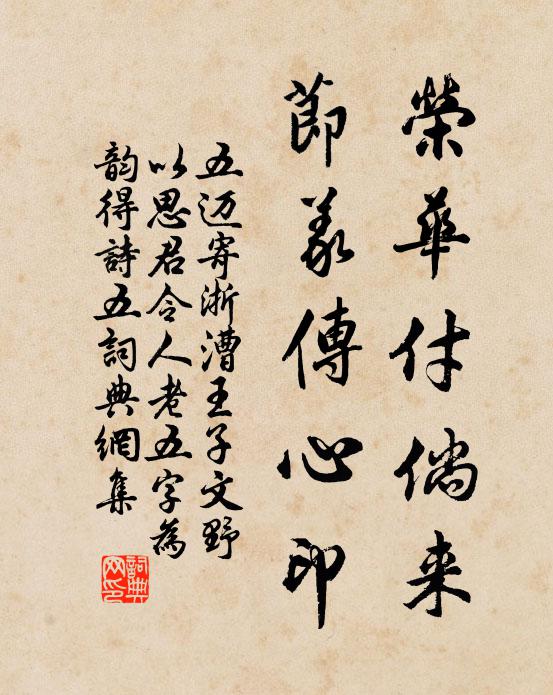 榮華付倘来
節義傳心印
五迈寄浙漕王子文野
以思君令人老五字為
韵得詩五詞典網集
詞典网印